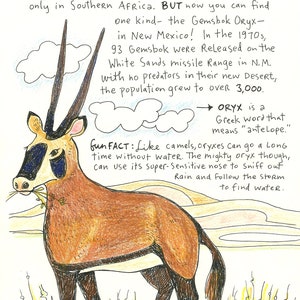 only in Southern Africa. BUT now you can find
one kind- the Gemsbok Oryx-
in New Mexico! In the 1970s,
93 Gemsbok were Released on the
White Sands missile Range in N.M.
With no predators in their new Desert,
the population grew to over 3,000.
→ ORYX is a
Greek word that
means "antelope."
fun FACT: Like camels, oryxes can go a Long
time without water. The mighty oryx though,
can use its super-sensitive nose to sniff out
Rain and follow the storm
to find water.